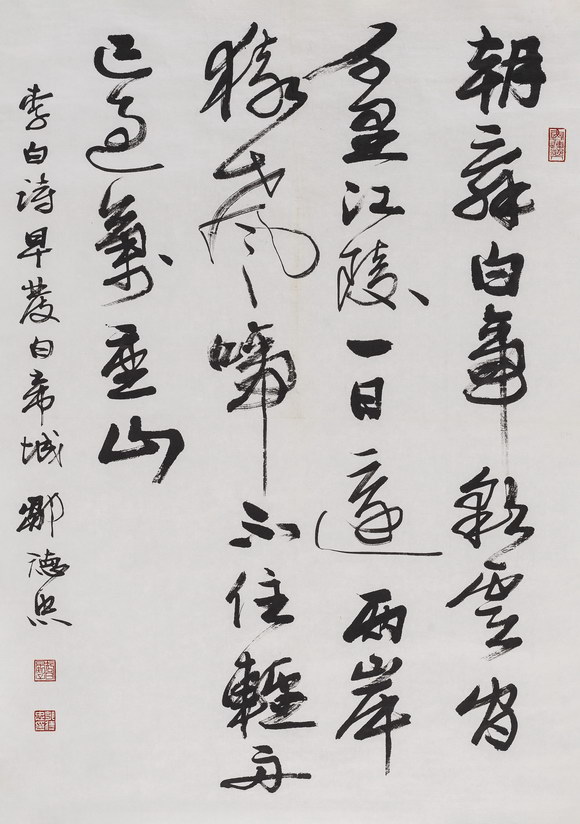 朝辭白帝彩雲間
千里江陵一日還兩岸
猿聲啼不住輕舟
已過萬重山
李白詩早發白帝城 鄒德忠